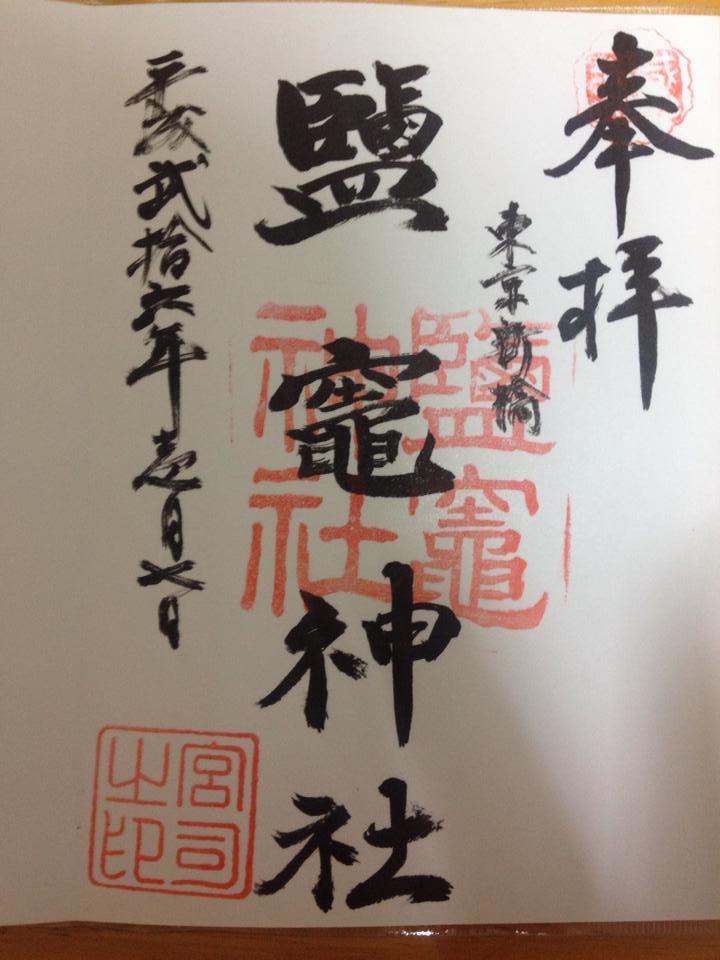 奉拝
東京新橋
鹽竈神社
平成弐拾六年壱月七日
鹽竈
神社
宮司
之印